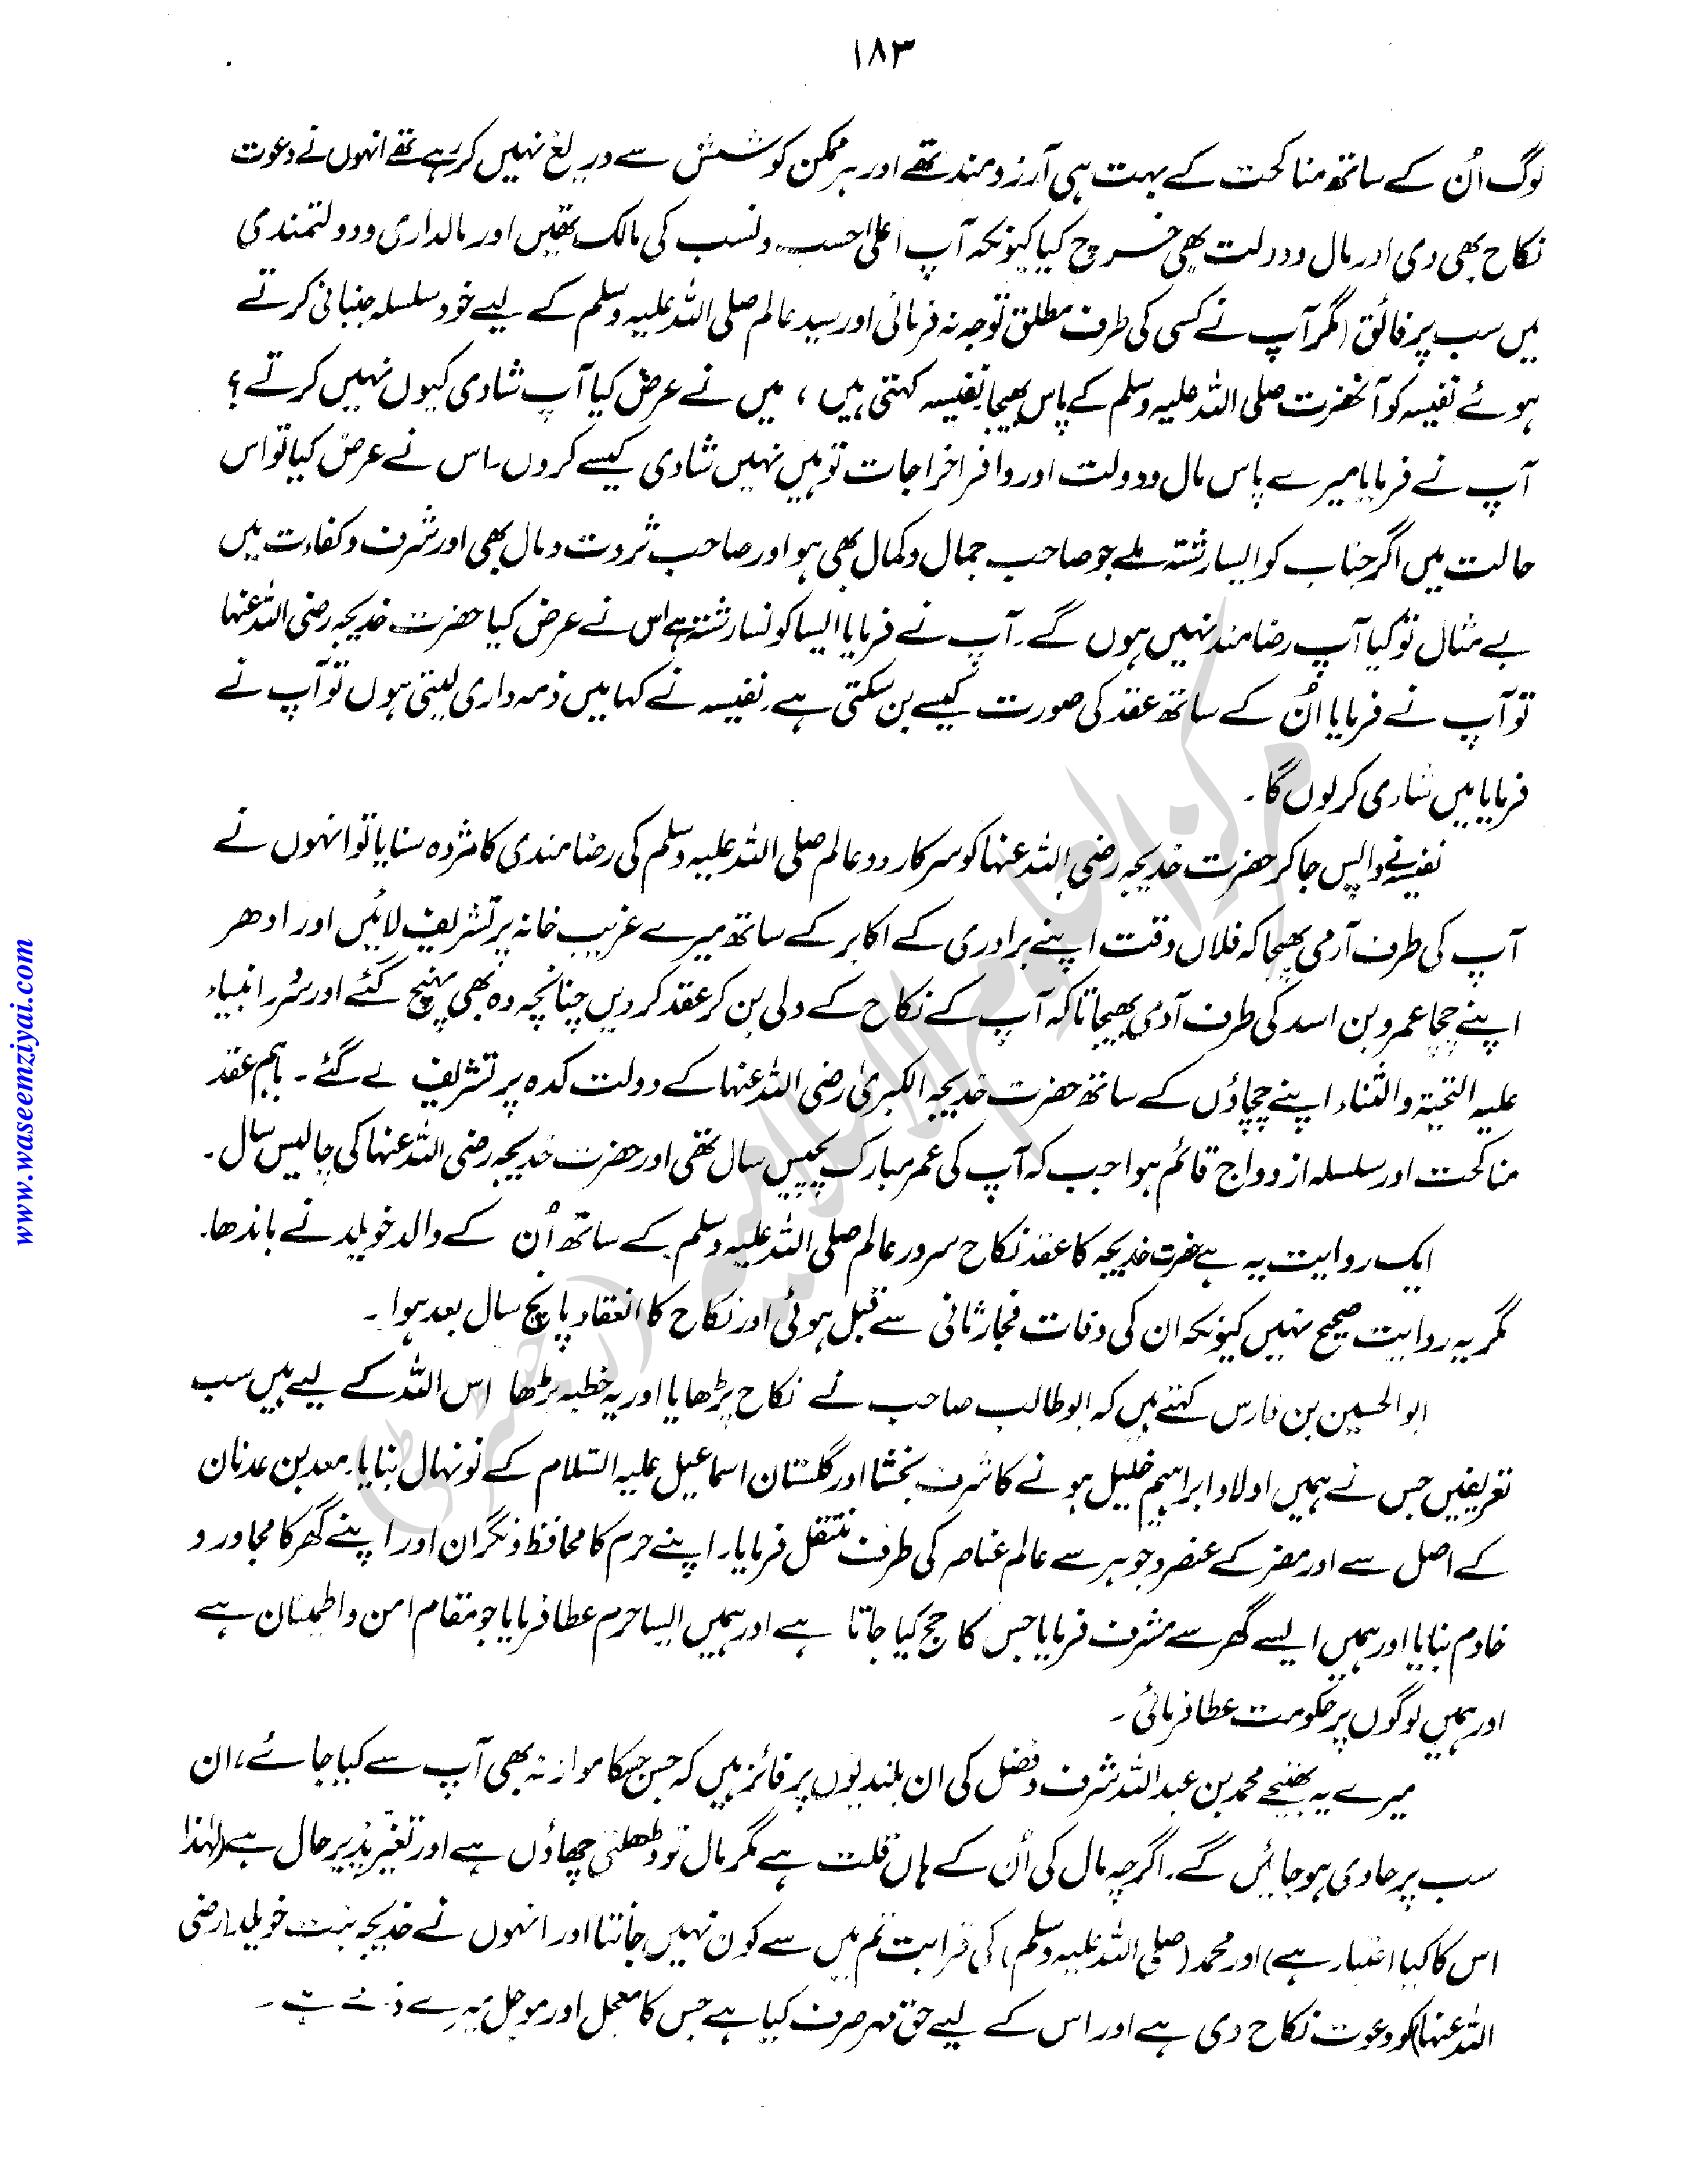 ۱۸۳
لوگ اُن کے ساتھ مناکحت کے بہت ہی آرزومند تھے اور ہر ممکن کوشش سے دریغ نہیں کر رہے تھے انہوں نے دعوت
نکاح بھی دی اور مال ودولت بھی خرچ کیا کیونکہ آپ اعلیٰ حسب ونسب کی مالک تھیں اور مالداری ودولتمندی
میں سب پر فائق (مگر آپ نے کسی کی طرف مطلق توجہ نہ فرمائی اور سید عالم صلی اللہ علیہ وسلم کے لیے خود سلسلہ جنبانی کرتے
ہوئے نفیسہ کو آنحضرت صلی اللہ علیہ وسلم کے پاس بھیجا نفیسہ کہتی ہیں ، میں نے عرض کیا آپ شادی کیوں نہیں کرتے ؟
آپ نے فرمایا میرے پاس مال ودولت اور وافر اخراجات تو ہیں نہیں شادی کیسے کروں۔ اس نے عرض کیا تو اس
حالت میں اگر جناب کو ایسا رشتہ ملے جو صاحب جمال وکمال بھی ہو اور صاحب ثروت ومال بھی اور شرف وکفاءت میں
بے مثال تو کیا آپ رضامند نہیں ہوں گے۔ آپ نے فرمایا ایسا کونسا رشتہ ہے اس نے عرض کیا حضرت خدیجہ رضی اللہ عنہا
تو آپ نے فرمایا اُن کے ساتھ عقد کی صورت کیسے بن سکتی ہے۔ نفیسہ نے کہا میں ذمہ داری لیتی ہوں تو آپ نے
فرمایا میں شادی کرلوں گا۔
نفیسہ نے واپس جا کر حضرت خدیجہ رضی اللہ عنہا کو سرکار دوعالم صلی اللہ علیہ وسلم کی رضامندی کا مژدہ سنایا تو انہوں نے
آپ کی طرف آدمی بھیجا کہ فلاں وقت اپنے برادری کے اکابر کے ساتھ میرے غریب خانہ پر تشریف لائیں اور ادھر
اپنے چچا عمرو بن اسد کی طرف آدمی بھیجا تاکہ آپ کے نکاح کے ولی بن کر عقد کر دیں چنانچہ وہ بھی پہنچ گئے اور سُرر انبیاء
علیہ التحیۃ والثناء اپنے چچاؤں کے ساتھ حضرت خدیجہ الکبریٰ رضی اللہ عنہا کے دولت کدہ پر تشریف لے گئے۔ باہم عقد
مناکحت اور سلسلہ ازدواج قائم ہوا جب کہ آپ کی عمر مبارک پچیس سال تھی اور حضرت خدیجہ رضی اللہ عنہا کی چالیس سال۔
ایک روایت یہ ہے حضرت خدیجہ کا عقد نکاح سرور عالم صلی اللہ علیہ وسلم کے ساتھ اُن کے والد خویلد نے باندھا۔
مگر یہ روایت صحیح نہیں کیونکہ ان کی وفات فجار ثانی سے قبل ہوئی اور نکاح کا انعقاد پانچ سال بعد ہوا۔
ابوالحسین بن فارس کہتے ہیں کہ ابوطالب صاحب نے نکاح پڑھایا اور یہ خطبہ پڑھا اس اللہ کے لیے ہیں سب
تعریفیں جس نے ہمیں اولاد ابراہیم خلیل ہونے کا شرف بخشا اور گلستان اسماعیل علیہ السلام کے نونہال بنایا۔ معد بن عدنان
کے اصل سے اور مضر کے عنصر وجوہر سے عالم عناصر کی طرف منتقل فرمایا۔ اپنے حرم کا محافظ ونگران اور اپنے گھر کا مجاور و
خادم بنایا اور ہمیں ایسے گھر سے مشرف فرمایا جس کا حج کیا جاتا ہے اور ہمیں ایسا حرم عطا فرمایا جو مقام امن واطمینان ہے
اور ہمیں لوگوں پر حکومت عطا فرمائی۔
میرے یہ بھتیجے محمد بن عبداللہ شرف وفضل کی ان بلندیوں پر فائز ہیں کہ جس جس کا موازنہ بھی آپ سے کیا جائے، ان
سب پر حاوی ہو جائیں گے۔ اگرچہ مال کی اُن کے ہاں قلت ہے مگر مال تو ڈھلتی چھاؤں ہے اور تغیر پذیر حال ہے (لہٰذا
اس کا کیا اعتبار ہے) اور محمد (صلی اللہ علیہ وسلم) کی قرابت تم میں سے کون نہیں جانتا اور انہوں نے خدیجہ بنت خویلد (رضی
اللہ عنہا) کو دعوت نکاح دی ہے اور اس کے لیے حق مہر صرف کیا ہے جس کا معجل اور موجل میرے ذمے ہے۔
www.waseemziyai.com